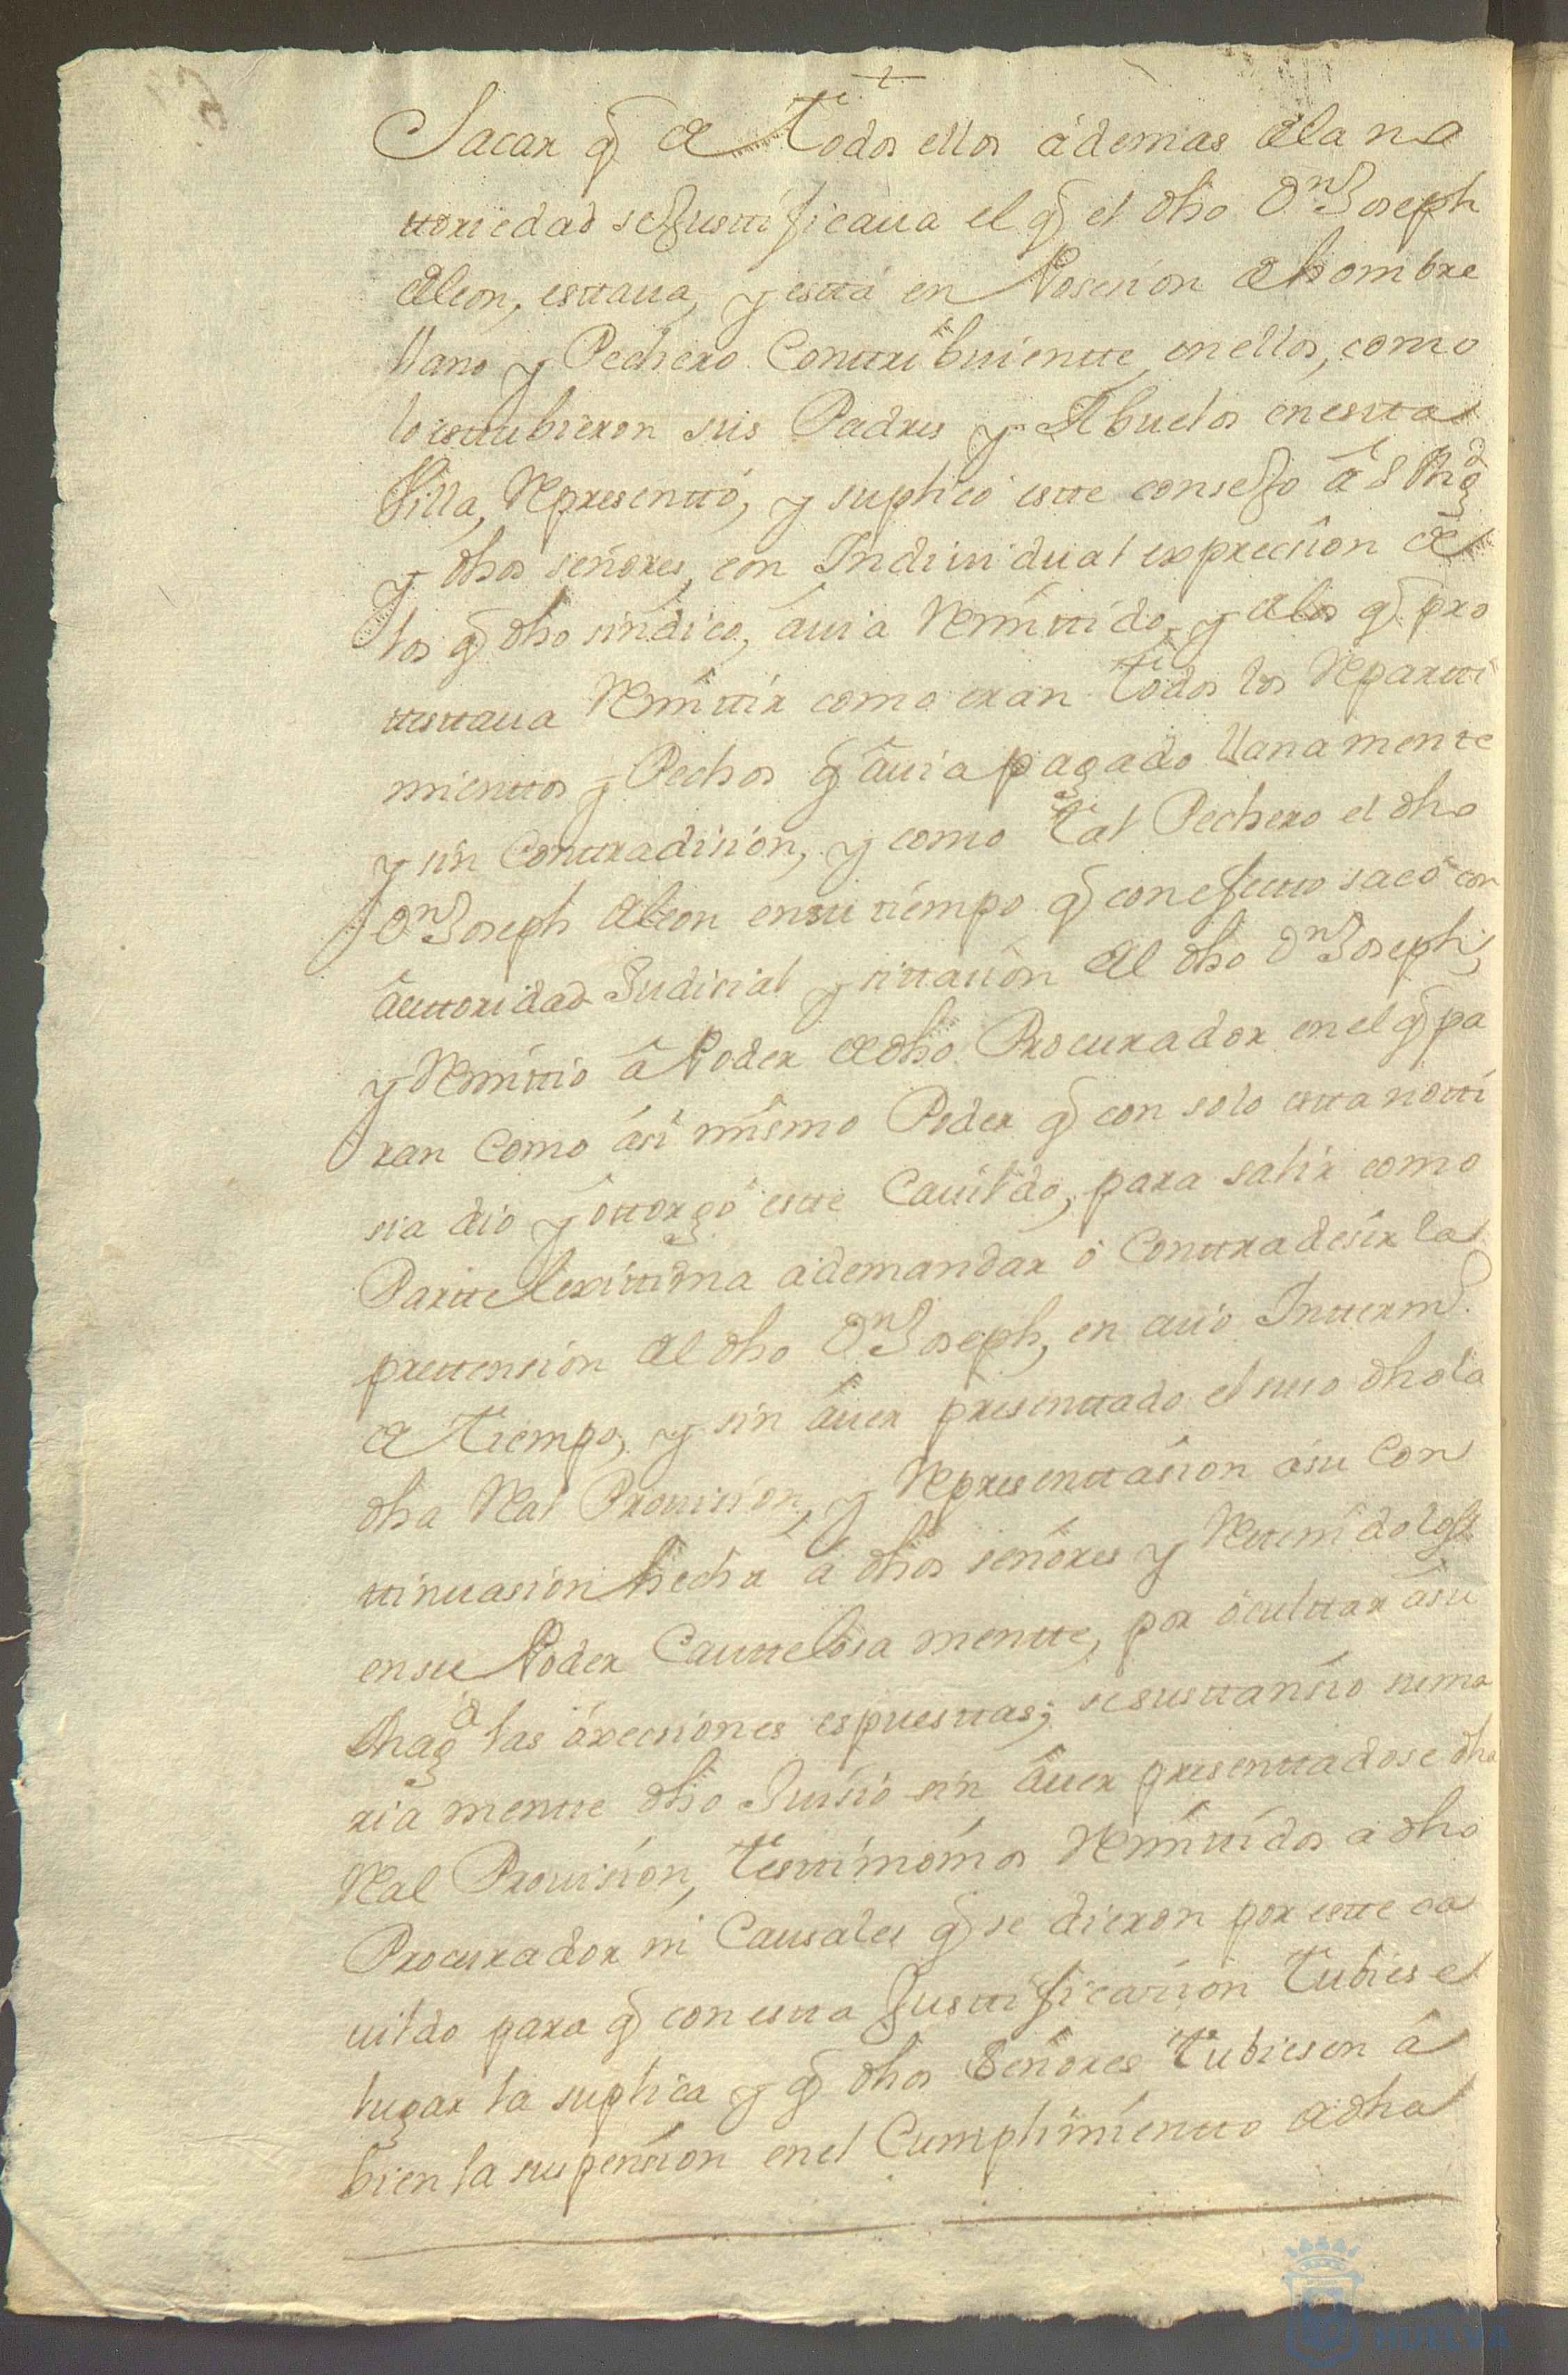 Sacar q̃ de todos ellos ademas dela no
ttoriedad se Justtificaua el q̃ el dho Dn Joseph
deleon, esttaua, y estta en Posesion de hombre
llano y Pechero Conttribuientte en ellos, como
lo esttubieron sus Padres y Abuelos en estta
Villa, Representtó, y suplicó estte consejo â S Mag̃d
y dhos señores, con Indiuidual expreciôn de
los q̃ dho sindico, áuia Remittido, y delos q̃ pro
ttesttaua Remittir como eran todos los Repartti
mienttos y Pechos q̃ âuia pagado llanamente
y sin Conttradision, y como tal Pechero el dho
Dn Joseph deleon en su tiempo q̃ con efectto sacó con
âuttoridad Judicial y sittasion del dho Dn Joseph,
y Remittio â Poder de dho Procurador en el q̃ pa
ran como ási mismo Poder q̃ con solo estta notti
sia dio y ôttorgó estte Cauildo, para salir como
Partte lexittima a demandar ó Conttradesir la
prettension del dho Dn Joseph, en cuio Intterm.
de tiempo, y sin âuer presenttado el suso dho la
dha Real Prouision, y Representtásion ásu Con
ttinuasion hecha á dhos señores y Rettenidolos
en su Poder Cauttelosa mentte, por óculttar ásu
Mag̃d las óxecsiones espuesttas; se susttansió suma
ria mentte dho Juisio sin âuer presenttadose dha
Real Prouision, Testtimonios Remittidos a dho
Procurador ni Causales q̃ se dieron por estte ca
uildo para q̃ con estta Justtificasion tubiese
lugar la suplica y q̃ dhos Señores tubiesen â
bien la suspension en el Cumplimientto de dha
HUELVA